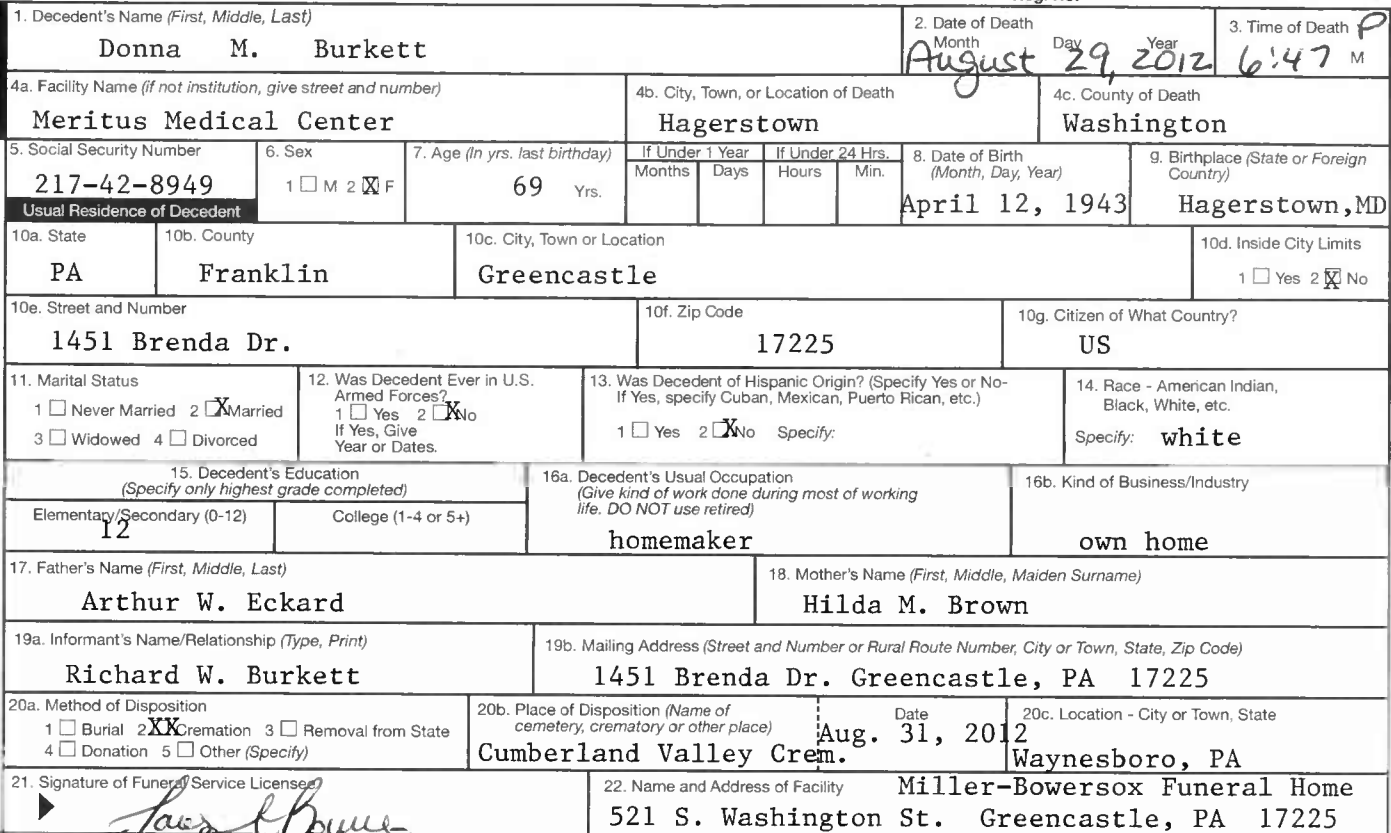 1. Decedent's Name (First, Middle, Last)
Donna M. Burkett
2. Date of Death
Month Day Year
August 29, 2012
3. Time of Death P
6:47 M
4a. Facility Name (if not institution, give street and number)
Meritus Medical Center
4b. City, Town, or Location of Death
Hagerstown
4c. County of Death
Washington
5. Social Security Number
217-42-8949
6. Sex
1 ☐ M 2 ☒ F
7. Age (In yrs. last birthday)
69 Yrs.
If Under 1 Year
Months Days
If Under 24 Hrs.
Hours Min.
8. Date of Birth
(Month, Day, Year)
April 12, 1943
9. Birthplace (State or Foreign
Country)
Hagerstown,MD
Usual Residence of Decedent
10a. State
PA
10b. County
Franklin
10c. City, Town or Location
Greencastle
10d. Inside City Limits
1 ☐ Yes 2 ☒ No
10e. Street and Number
1451 Brenda Dr.
10f. Zip Code
17225
10g. Citizen of What Country?
US
11. Marital Status
1 ☐ Never Married 2 ☒ Married
3 ☐ Widowed 4 ☐ Divorced
12. Was Decedent Ever in U.S.
Armed Forces?
1 ☐ Yes 2 ☒ No
If Yes, Give
Year or Dates.
13. Was Decedent of Hispanic Origin? (Specify Yes or No-
If Yes, specify Cuban, Mexican, Puerto Rican, etc.)
1 ☐ Yes 2 ☒ No Specify:
14. Race - American Indian,
Black, White, etc.
Specify: white
15. Decedent's Education
(Specify only highest grade completed)
Elementary/Secondary (0-12)
12
College (1-4 or 5+)
16a. Decedent's Usual Occupation
(Give kind of work done during most of working
life. DO NOT use retired)
homemaker
16b. Kind of Business/Industry
own home
17. Father's Name (First, Middle, Last)
Arthur W. Eckard
18. Mother's Name (First, Middle, Maiden Surname)
Hilda M. Brown
19a. Informant's Name/Relationship (Type, Print)
Richard W. Burkett
19b. Mailing Address (Street and Number or Rural Route Number, City or Town, State, Zip Code)
1451 Brenda Dr. Greencastle, PA 17225
20a. Method of Disposition
1 ☐ Burial 2 XX Cremation 3 ☐ Removal from State
4 ☐ Donation 5 ☐ Other (Specify)
20b. Place of Disposition (Name of
cemetery, crematory or other place)
Cumberland Valley Crem.
Date
Aug. 31, 2012
20c. Location - City or Town, State
Waynesboro, PA
21. Signature of Funeral Service Licensee
22. Name and Address of Facility Miller-Bowersox Funeral Home
521 S. Washington St. Greencastle, PA 17225